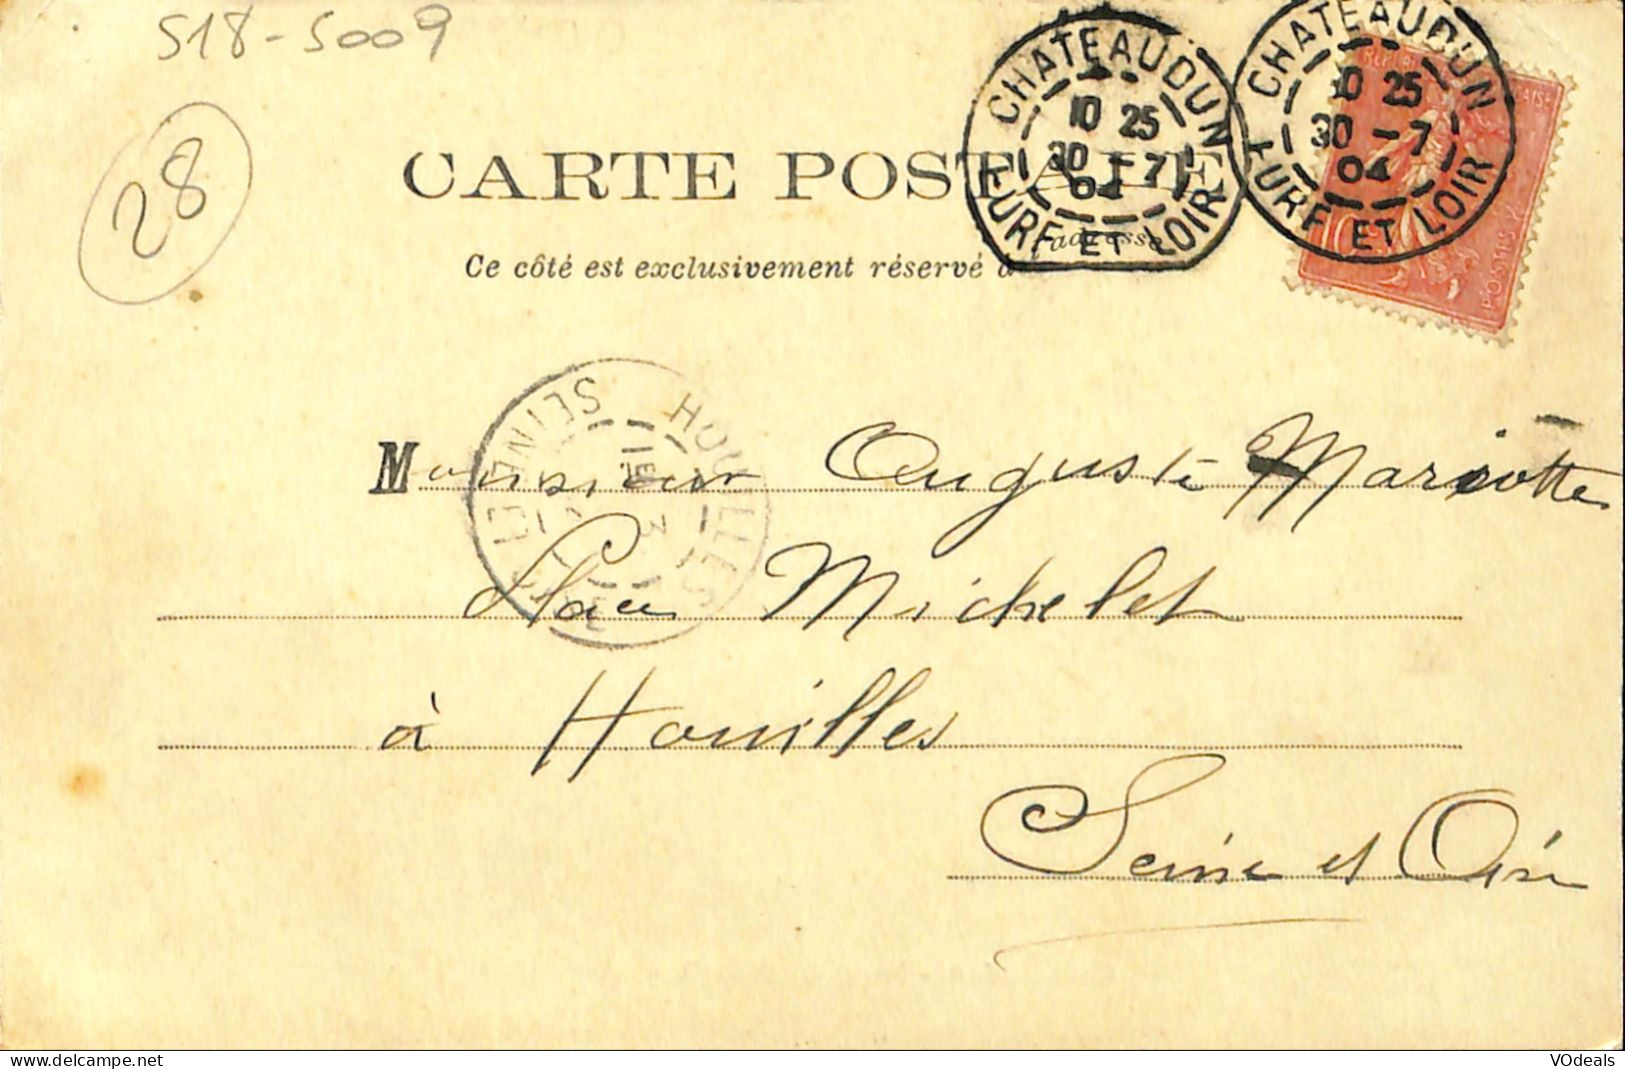 S18-5009
28
CHATEAUDUN
10 25
30 - 7
04
EURE ET LOIR
CHATEAUDUN
10 25
30 - 7
04
EURE ET LOIR
POSTES
CARTE POSTALE
Ce côté est exclusivement réservé à l'adresse
HOUILLES
SEINE ET OISE
Monsieur Auguste Mariotte
Place Michelet
à Houilles
Seine et Oise
delcampe.net
VOdeals